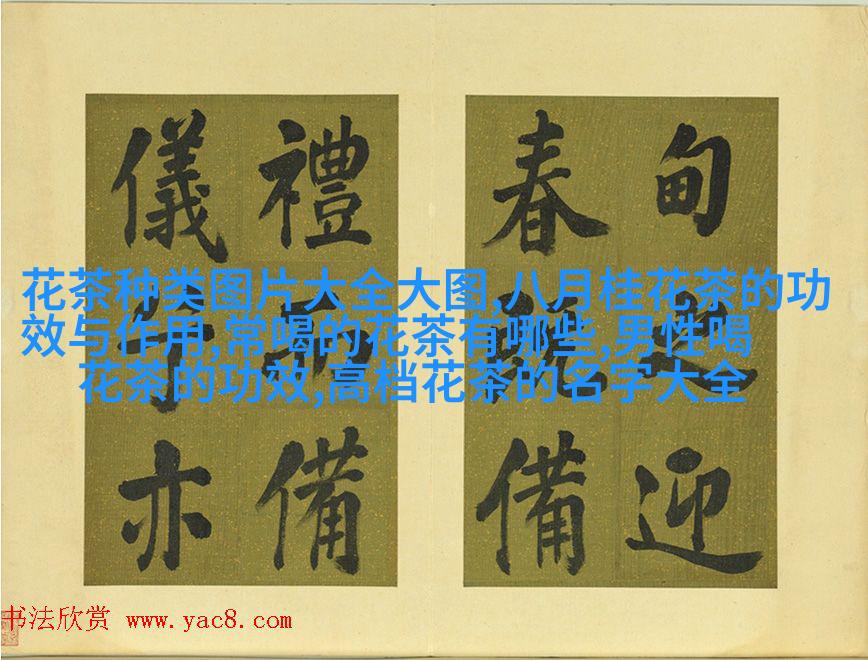 甸迎
春備
禮備
儀亦
花茶种类图片大全大图,八月桂花茶的功
效与作用,常喝的花茶有哪些,男性喝
花茶的功效,高档花茶的名字大全
书法欣赏 www.yac8.com